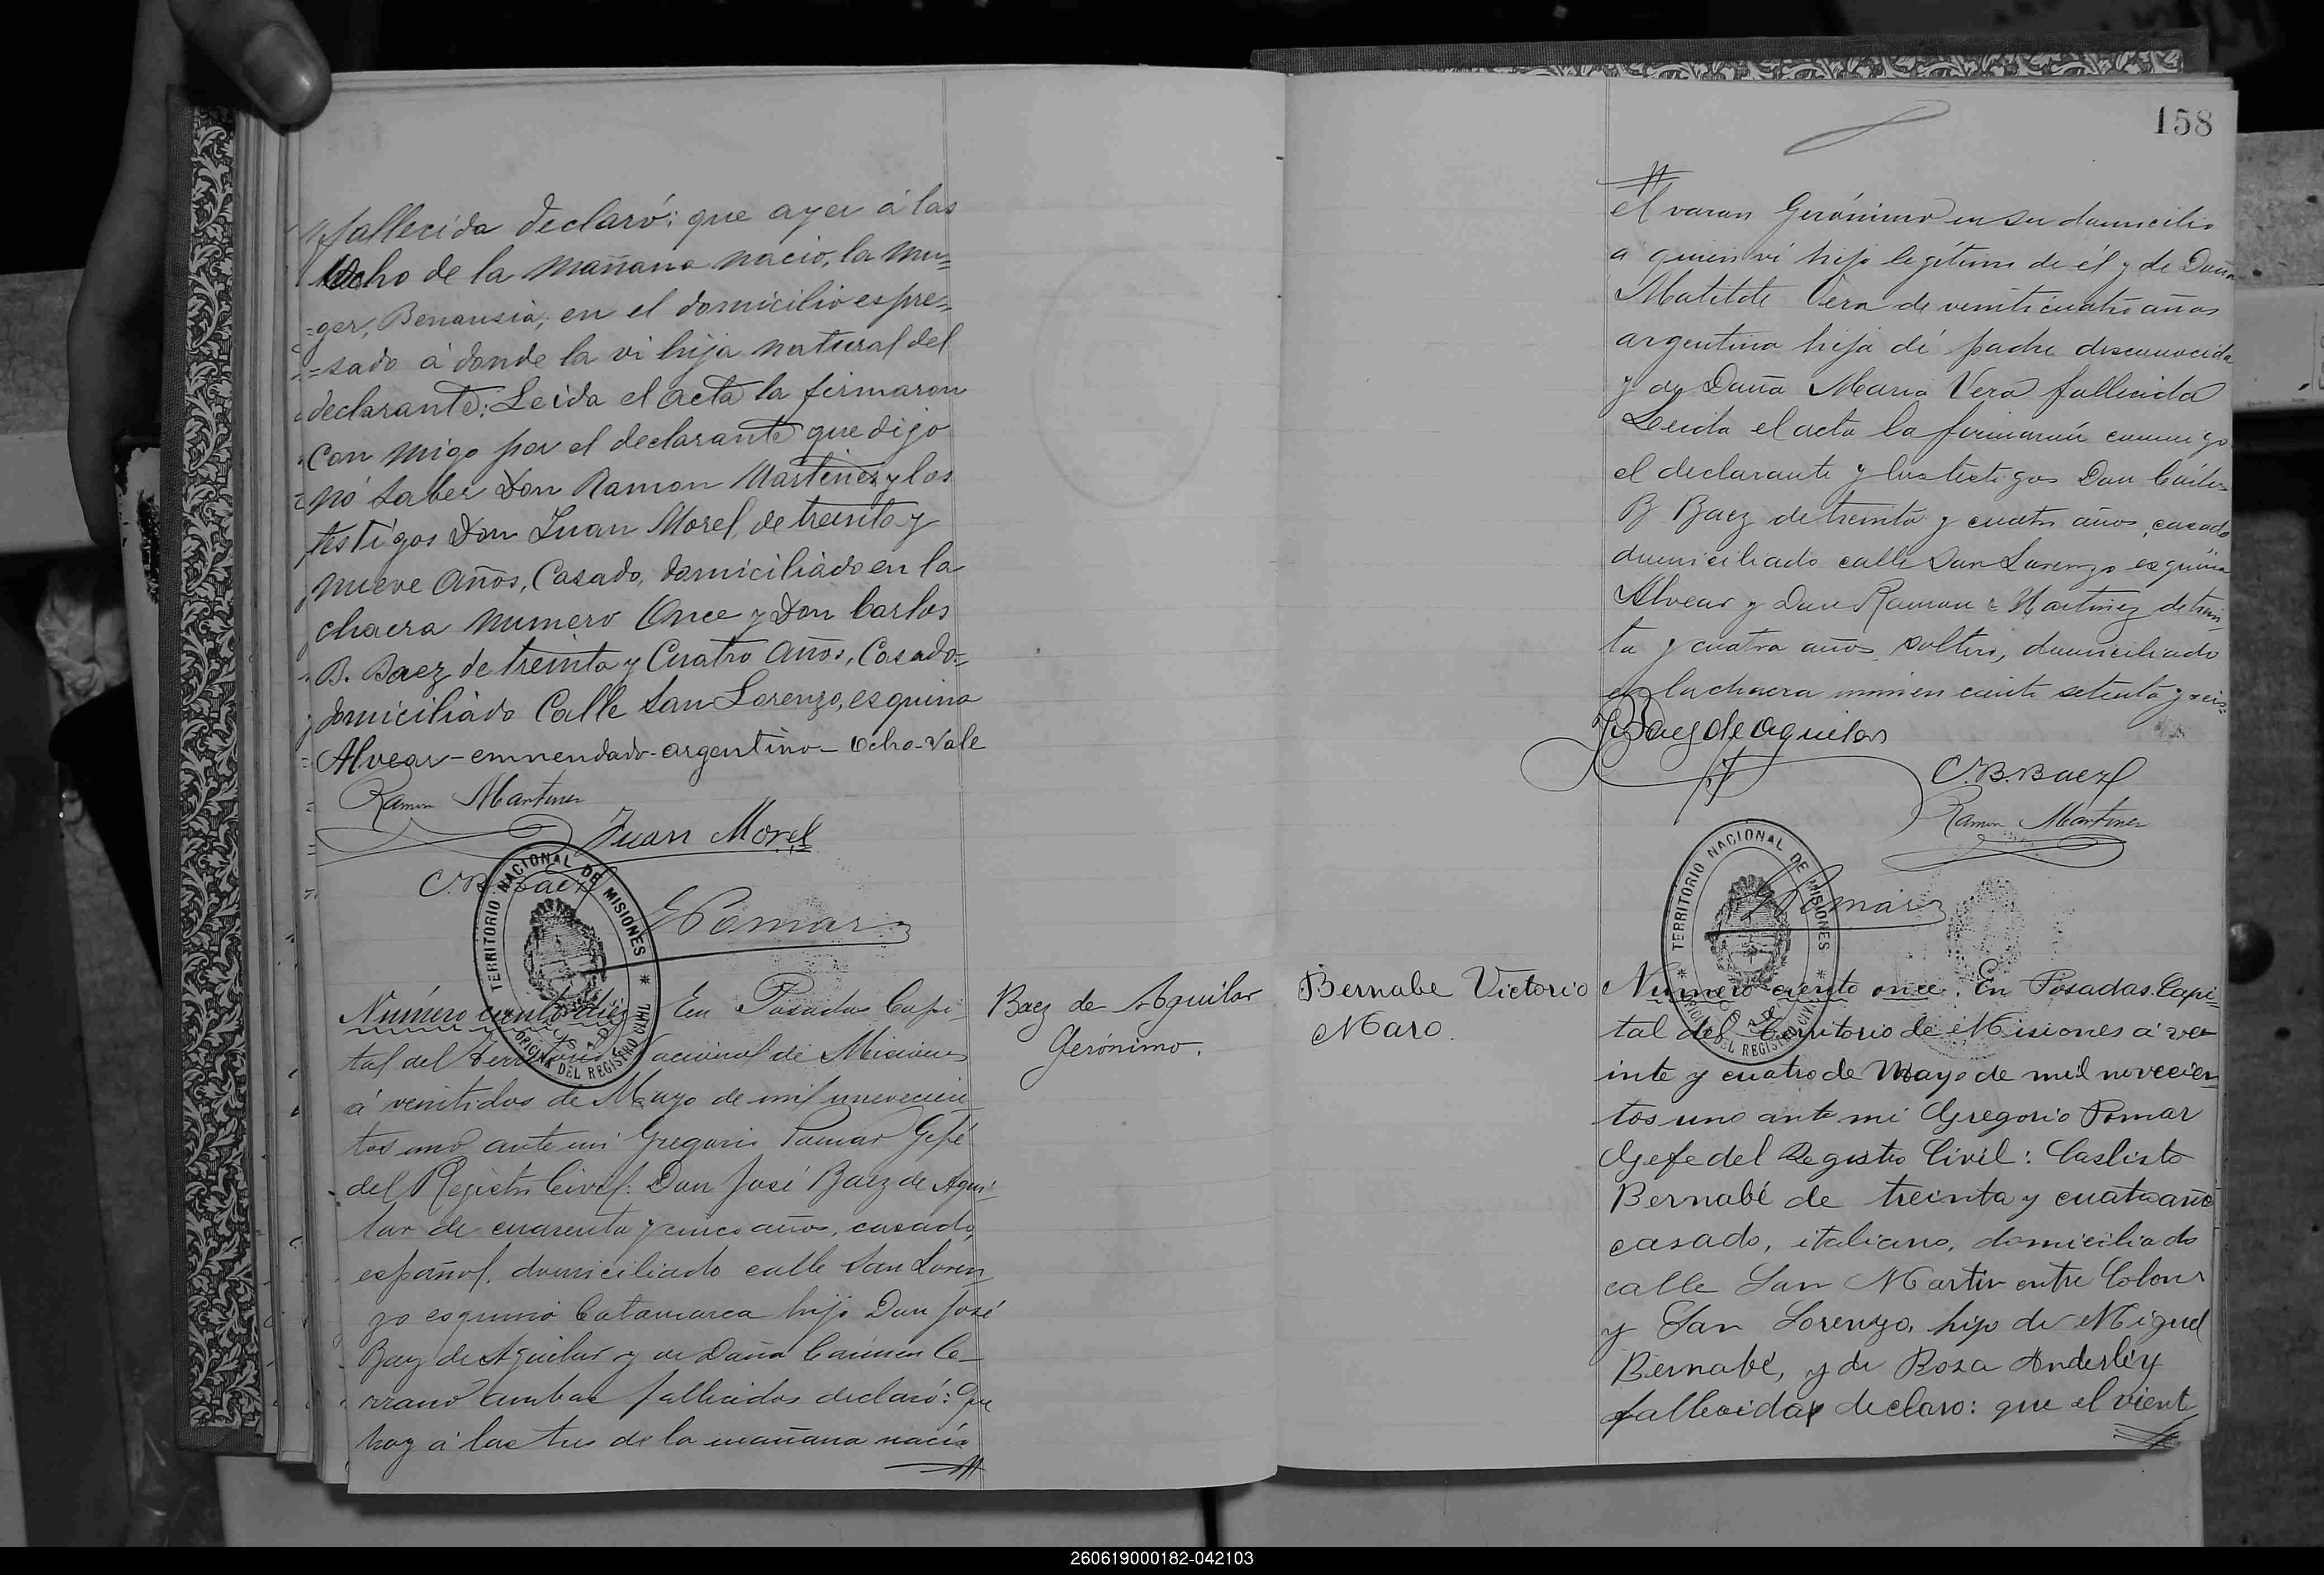 fallecida declaró: que ayer á las
Ocho de la mañana nacio, la mu=
=ger, Benansia, en el domicilio espre=
=sado á donde la vi hija natural del
declarante: Leida el acta la firmaron
con migo por el declarante que dijo
nó saber Don Ramon Martinez y los
testigos Don Juan Morel, de treinta y
nueve años, Casado, domiciliado en la
chacra numero Once y Don Carlos
B. Baez de treinta y Cuatro años, Casado=
domiciliado Calle San Lorenzo, esquina
Alvear - emnendado - argentino - Ocho - Vale
Ramon Martinez
Juan Morel
C. B. Baez
TERRITORIO NACIONAL DE MISIONES
OFICINA DEL REGISTRO CIVIL
POSADAS
G Pomar
Baez de Aguilar
Gerónimo.
Número ciento diez En Posadas Capi-
tal del Territorio Nacional de Misiones
á veintidos de Mayo de mil novecien
tos uno ante mi Gregorio Pomar Gefé
del Registro Civil: Don José Baez de Agui-
lar de cuarenta y cinco años, casado,
español, domiciliado calle San Loren
zo esquina Catamarca hijo Don José
Baez de Aguilar y de Doña Cármen Ce-
rrano ambos fallecidos declaró: Que
hoy á las tres de la mañana nació
158
el varon Gerónimo en su domicilio
a quien vi hijo legítimo de él y de Doña
Matilde Vera de veinticuatro años
argentina hija de padre desconocido
y de Doña Maria Vera fallecida
Leida el acta la firmaron conmigo
el declarante y los testigos Don Cárlos
B Baez de treinta y cuatro años, casado
domiciliado calle San Lorenzo esquina
Alvear y Don Ramon Martinez de trein
ta y cuatro años, soltero, domiciliado
en la chacra numero ciento setenta y seis.
J Baez de Aguilar
C. B. Baez
Ramon Martinez
TERRITORIO NACIONAL DE MISIONES
OFICINA DEL REGISTRO CIVIL
POSADAS
G Pomar
Bernabe Victorio
Maro.
Número ciento once. En Posadas Capi-
tal del Territorio de Misiones á ve-
inte y cuatro de Mayo de mil novecien
tos uno ante mi Gregorio Pomar
Gefe del Registro Civil: Caslisto
Bernabé de treinta y cuatro años
casado, italiano, domiciliado
calle San Martin entre Colon
y San Lorenzo, hijo de Miguel
Bernabé, y de Rosa Anderley
fallecida declaro: que el viente
260619000182-042103